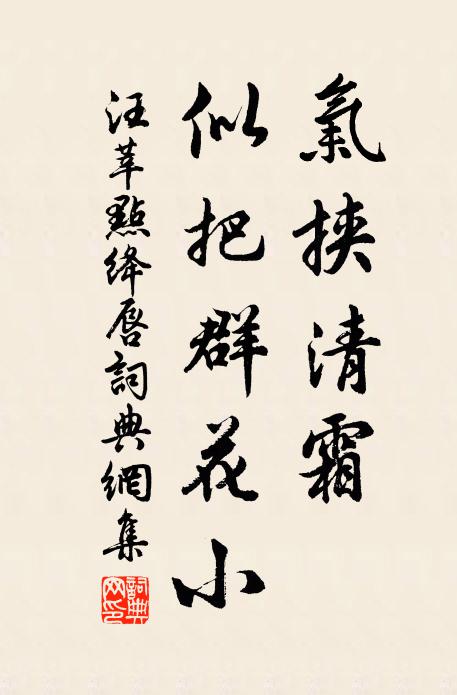 氣挾清霜
似把群花小
汪莘點絳唇詞典網集
詞典網印